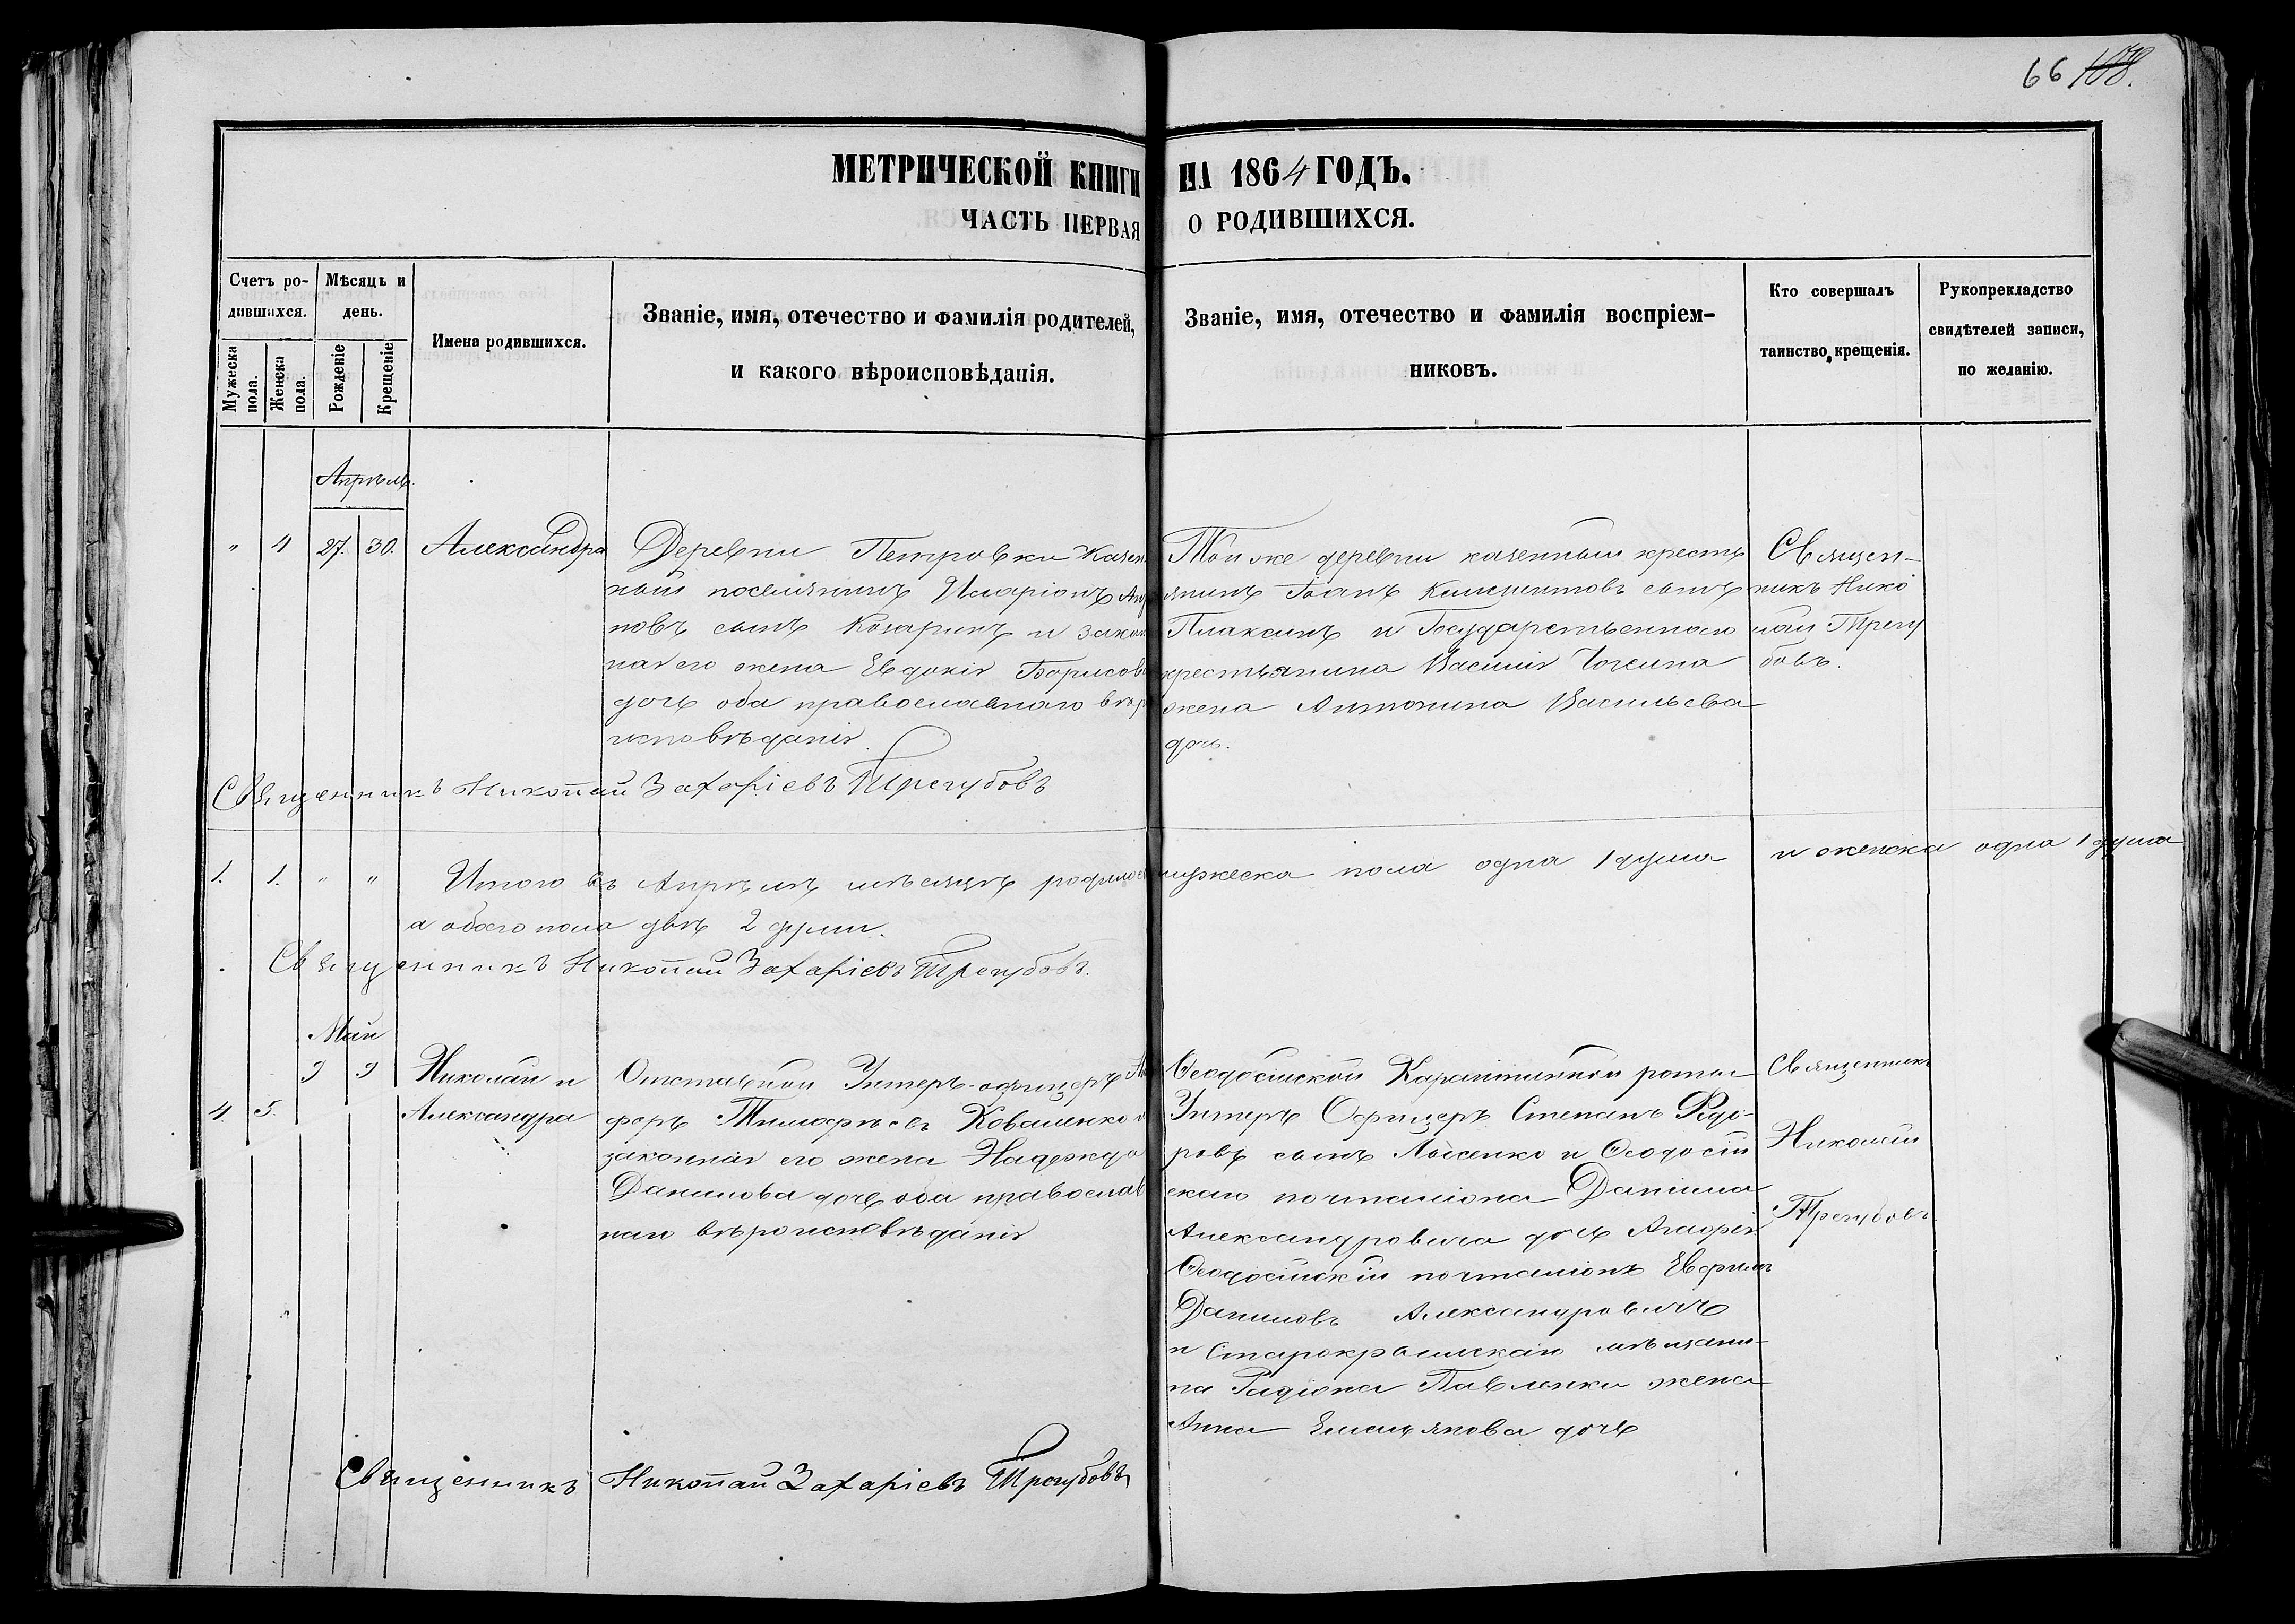 66 108.
МЕТРИЧЕСКОЙ КНИГИ НА 1864 ГОДЪ.
ЧАСТЬ ПЕРВАЯ О РОДИВШИХСЯ.
Счетъ ро-
дившихся.
Мужеска пола.
Женска пола.
Мѣсяцъ и
день.
Рожденіе
Крещеніе
Имена родившихся.
Званіе, имя, отечество и фамилія родителей,
и какого вѣроисповѣданія.
Званіе, имя, отечество и фамилія воспріем-
никовъ.
Кто совершалъ
таинство крещенія.
Рукоприкладство
свидѣтелей записи,
по желанію.
Апрѣль.
" 4 27. 30. Александра
Деревни Петровки Казен
ный поселянинъ Иларіонъ
новъ сынъ Козаринъ и закон
ная его жена Евдокія Борисов
дочь оба православнаго вѣр
исповѣданія.
Той же деревни казенный кресть
янинъ Іоанъ Климентовъ сынъ
Плаксинъ и Государственнаго
крестьянина Василія
жена Антонина Васильева
дочь.
Священ-
никъ Нико
лай Трегу
бовъ.
Священникъ Николай Захаріевъ Трегубовъ
1. 1. " " Итого въ Апрѣлѣ мѣсяцѣ родилось мужеска пола одна 1 душа и женска одна 1 душа
а обоего пола двѣ 2 души.
Священникъ Николай Захаріевъ Трегубовъ.
Май
9 9
4. 5.
Николай и
Александра
Отставной Унтеръ-офицеръ
форъ Тимофѣевъ Коваленко и
законная его жена Надежда
Данилова дочь оба православ
наго вѣроисповѣданія
Ѳеодосійской Карантинной роты
Унтеръ Офицеръ Степанъ Ѳедо-
ровъ сынъ Лысенко и Ѳеодосій
скаго почталіона Даніила
Александровича дочь
Ѳеодосійскій почталіонъ Евфимъ
Даниловъ Александровичъ
и Старокрымскаго мѣщани-
на Радіона Павленки жена
Анна Емельянова дочь
Священникъ
Николай
Трегубовъ.
Священникъ Николай Захаріевъ Трегубовъ